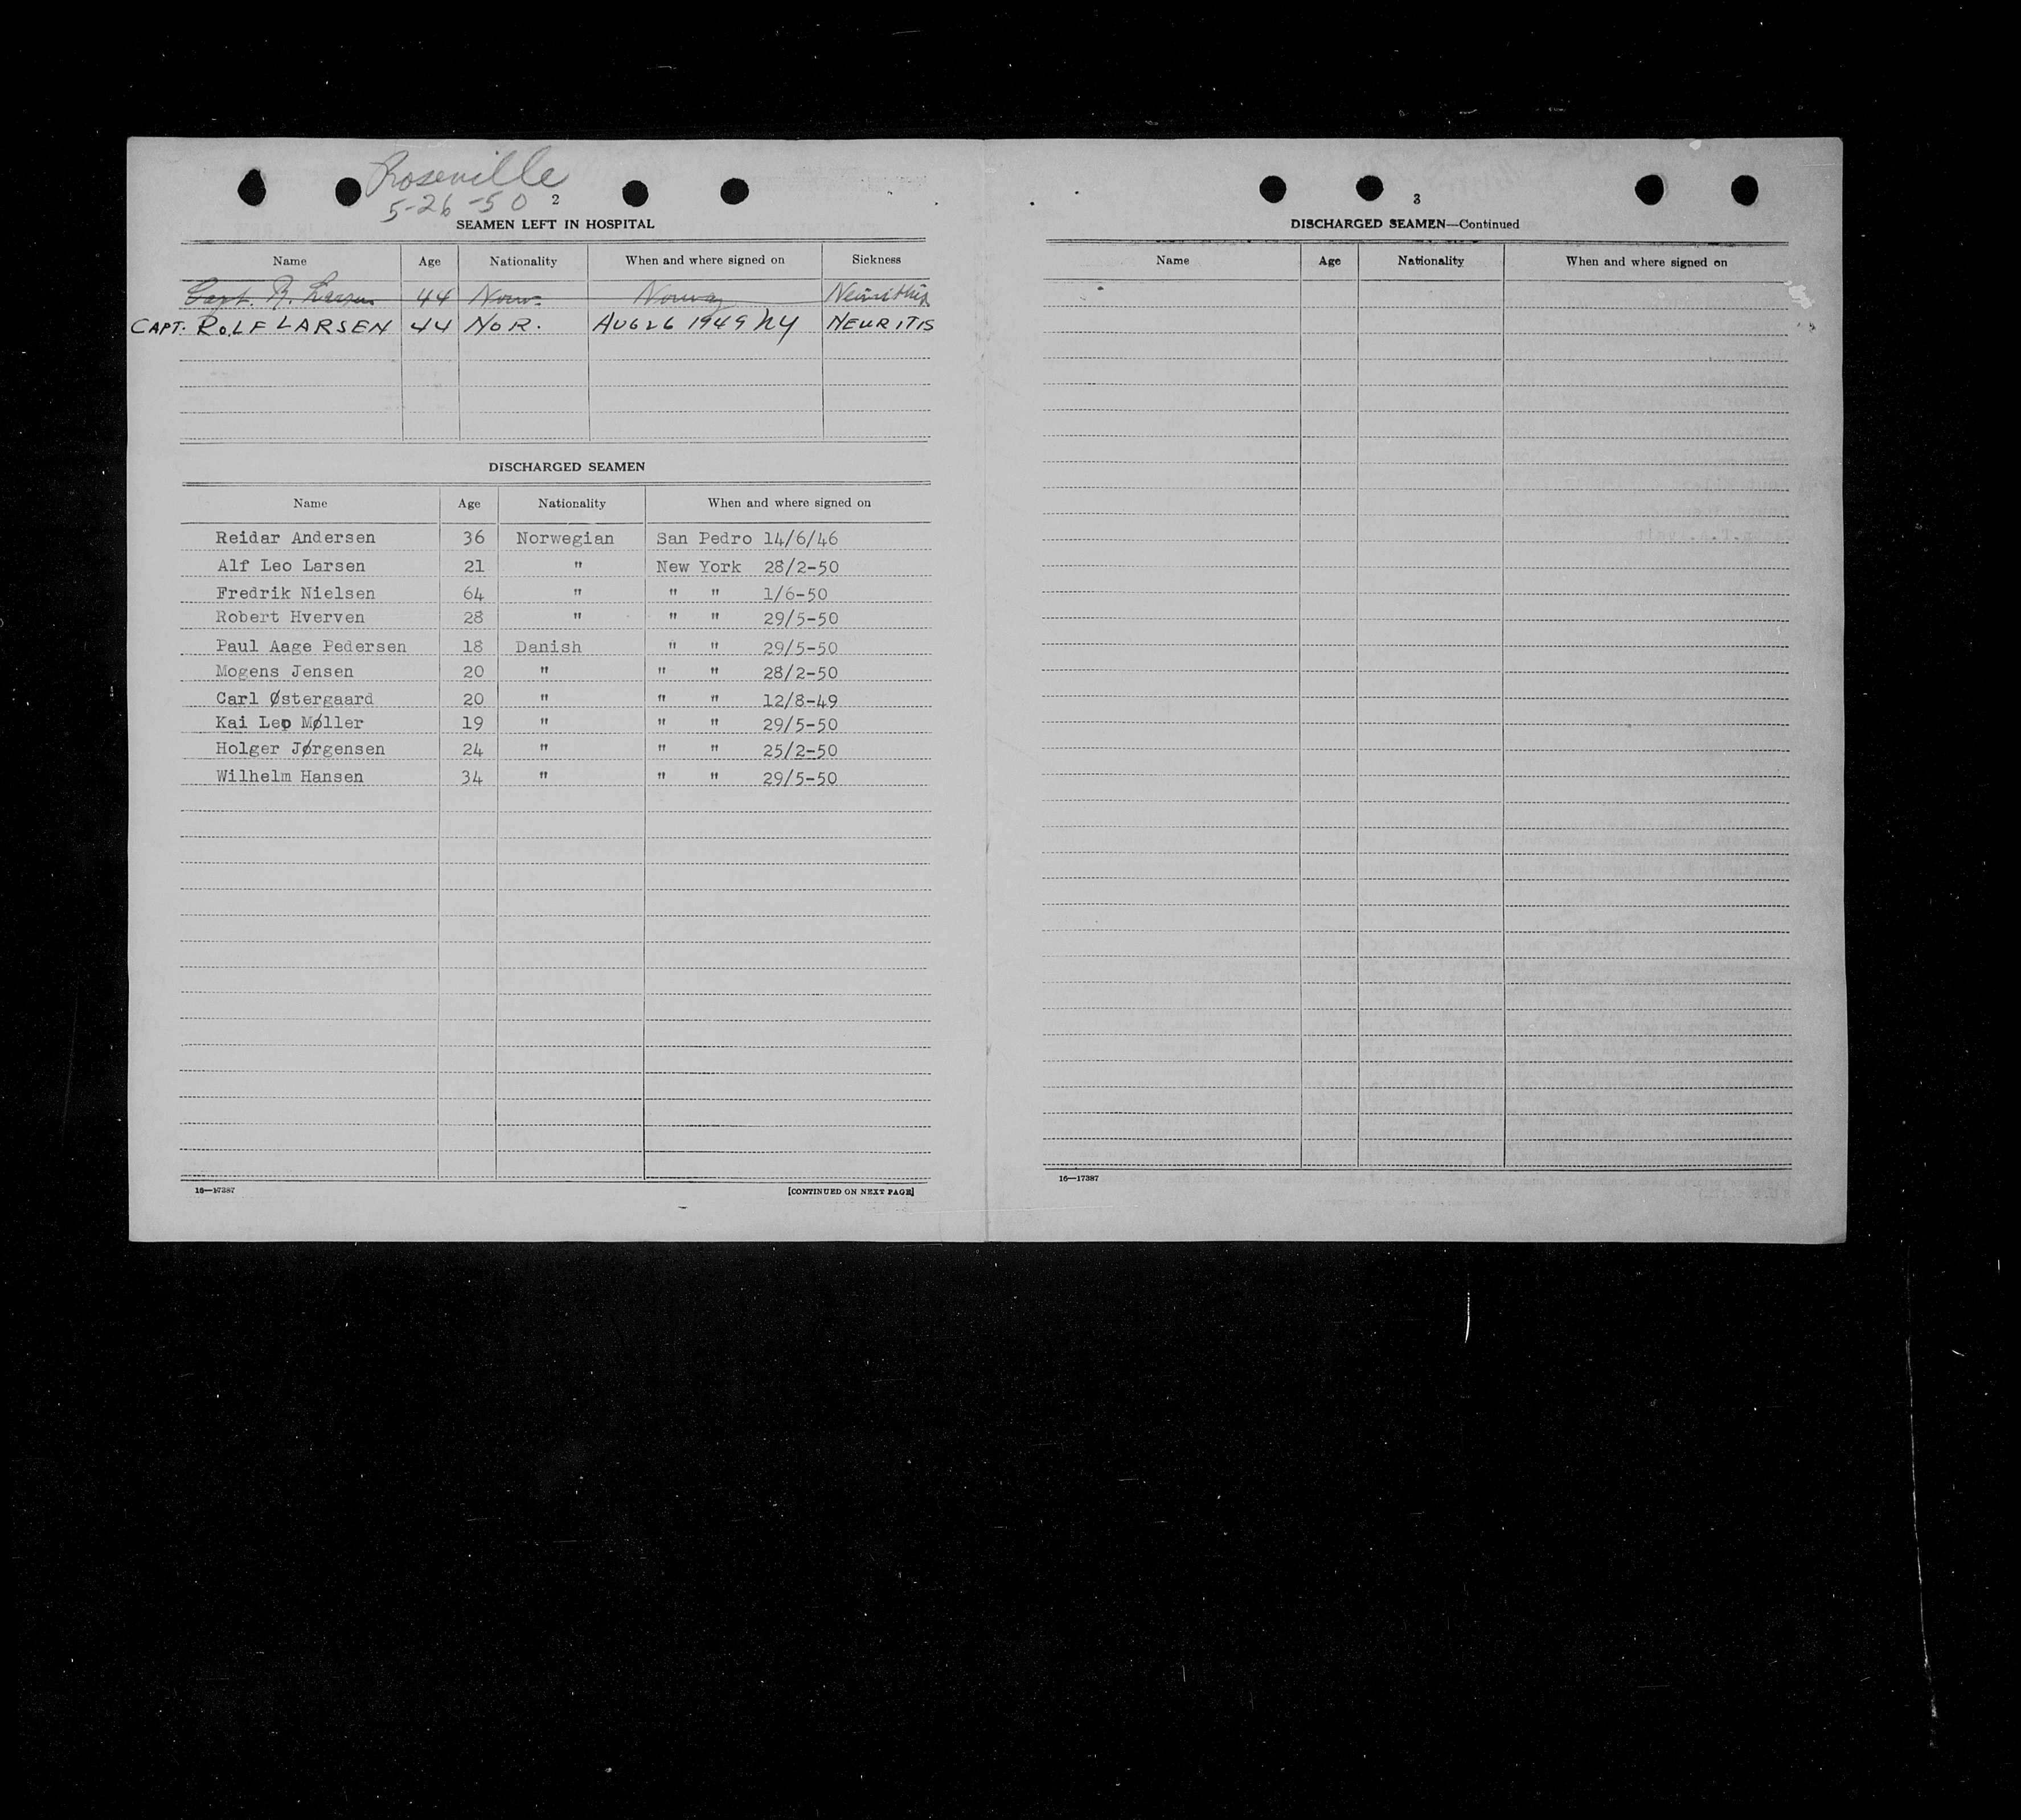 Roseville
5-26-50
2
SEAMEN LEFT IN HOSPITAL
Name Age Nationality When and where signed on Sickness
Capt. R. Larsen 44 Norw. Norway
CAPT. ROLF LARSEN 44 NOR. AUG 26 1949 NY NEURITIS
DISCHARGED SEAMEN
Name Age Nationality When and where signed on
Reidar Andersen 36 Norwegian San Pedro 14/6/46
Alf Leo Larsen 21 " New York 28/2-50
Fredrik Nielsen 64 " " " 1/6-50
Robert Hverven 28 " " " 29/5-50
Paul Aage Pedersen 18 Danish " " 29/5-50
Mogens Jensen 20 " " " 28/2-50
Carl Østergaard 20 " " " 12/8-49
Kai Leo Møller 19 " " " 29/5-50
Holger Jørgensen 24 " " " 25/2-50
Wilhelm Hansen 34 " " " 29/5-50
16—17387
[CONTINUED ON NEXT PAGE]
3
DISCHARGED SEAMEN—Continued
Name Age Nationality When and where signed on
16—17387